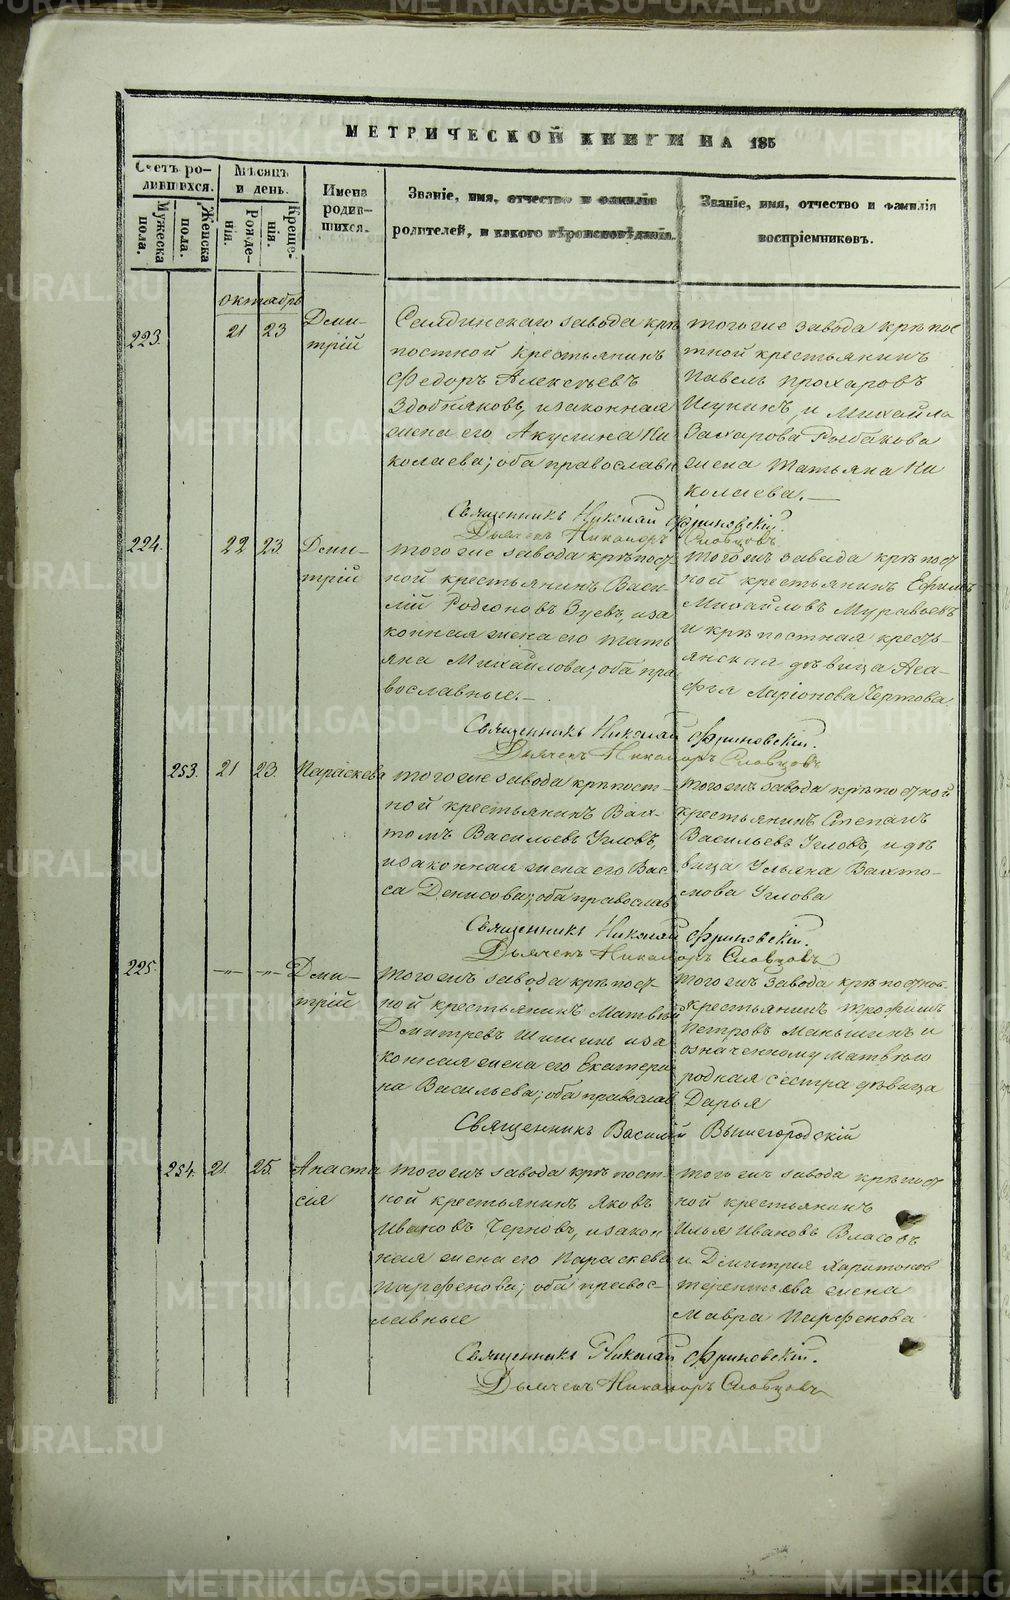 МЕТРИЧЕСКОЙ КНИГИ НА 185
Счетъ ро-
дившихся.
Мужеска
пола.
Женска
пола.
Мѣсяцъ
и день.
Рожде-
нія.
Креще-
нія.
Имена
родив-
шихся.
Званіе, имя, отчество и фамилія
родителей, и какого вѣроисповѣданія.
Званіе, имя, отчество и фамилія
воспріемниковъ.
октябрь
223.
21
23
Дми-
трій
Салдинскаго завода крѣ
постной крестьянинъ
Федоръ Алексѣевъ
Здобняковъ, изаконная
жена его Акулина Ни
колаева; оба православн
тогоже завода крѣпос
тной крестьянинъ
Павелъ Прохаровъ
Шунинъ, и Михайла
Захарова Рыбакова
жена Татьяна Ни
колаева.—
Священникъ Николай Фриновскій.
Дьячекъ Никаноръ Словцовъ
224.
22
23
Дми-
трій
тогоже завода крѣпост
ной крестьянинъ Васи-
лій Родіоновъ Зуевъ, иза
конная жена его Тать
яна Михайлова; оба пра
вославные.—
тогожъ завода крѣпост
ной крестьянинъ Ефимъ
Михайловъ Муравьевъ
и крѣпостная кресть-
янская дѣвица Ага-
фья Ларіонова Чертова
Священникъ Николай Фриновскій.
Дьячекъ Никаноръ Словцовъ
253.
21
23.
Параскева
тогоже завода крѣпост-
ной крестьянинъ Вах-
томъ Васильевъ Угловъ,
изаконная жена его Вас-
са Денисова; оба православ
тогожъ завода крѣпостной
крестьянинъ Степанъ
Васильевъ Угловъ, идѣ
вица Ульяна Вахто-
мова Углова
Священникъ Николай Фриновскій.
Дьячекъ Никаноръ Словцовъ
225.
—„—
—„—
Дми-
трій
тогожъ завода крѣпост
ной крестьянинъ Матвѣй
Дмитревъ Шишинъ иза
конная жена его Екатери
на Васильева; оба православ
тогожъ завода крѣпостной
крестьянинъ Трофимъ
Петровъ Маньшинъ и
означенному Матвѣю
родная сестра дѣвица
Дарья
Священникъ Василій Вышегородскій
254.
21.
25.
Анаста
сія
тогожъ завода крѣпост
ной крестьянинъ Яковъ
Ивановъ Черновъ, изакон
ная жена его Параскева
Парфенова; оба правос-
лавные
тогожъ завода крѣпост
ной крестьянинъ
Илья Ивановъ Власовъ
и Дмитрія Харитонов
Терентьева жена
Мавра Парфенова
Священникъ Николай Фриновскій.
Дьячекъ Никаноръ Словцовъ
METRIKI.GASO-URAL.RU